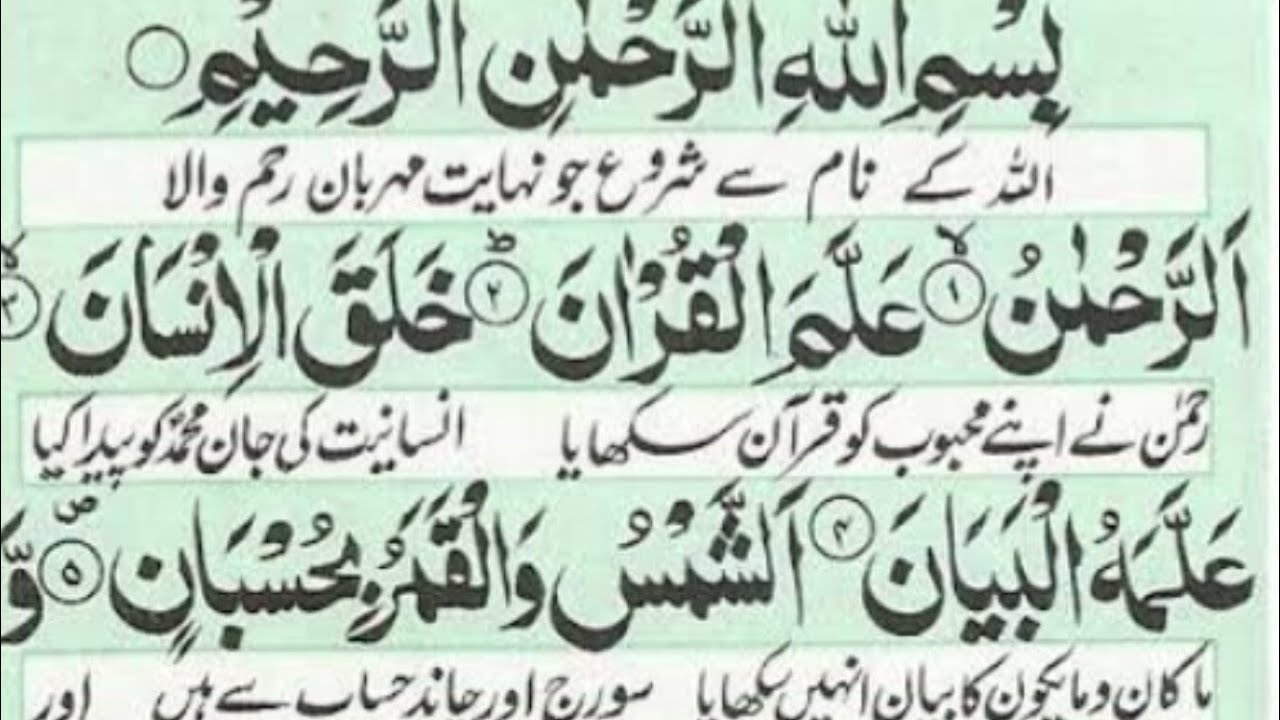 بِسْمِ اللهِ الرَّحْمٰنِ الرَّحِيْمِ
اللہ کے نام سے شروع جو نہایت مہربان رحم والا
اَلرَّحْمٰنُ ۙ﴿۱﴾ عَلَّمَ الْقُرْاٰنَ ؕ﴿۲﴾ خَلَقَ الْاِنْسَانَ ۙ﴿۳﴾
رحمٰن نے اپنے محبوب کو قرآن سکھایا انسانیت کی جان محمد کو پیدا کیا
عَلَّمَهُ الْبَيَانَ ﴿۴﴾ اَلشَّمْسُ وَالْقَمَرُ بِحُسْبَانٍ ۪﴿۵﴾ وَّ
ما کان وما یکون کا بیان انہیں سکھایا سورج اور چاند حساب سے ہیں اور